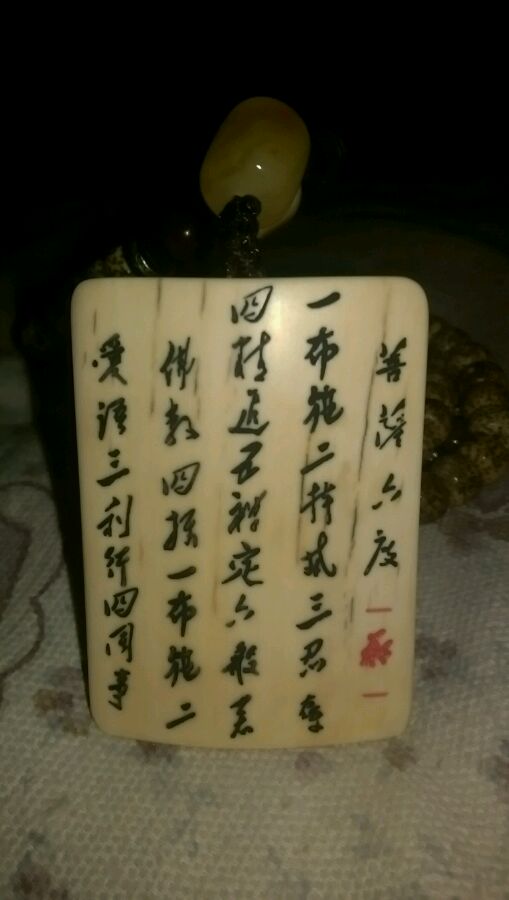 菩薩六度
一布施二持戒三忍辱
四精進五禅定六般若
佛教四摂一布施二
愛语三利行四同事